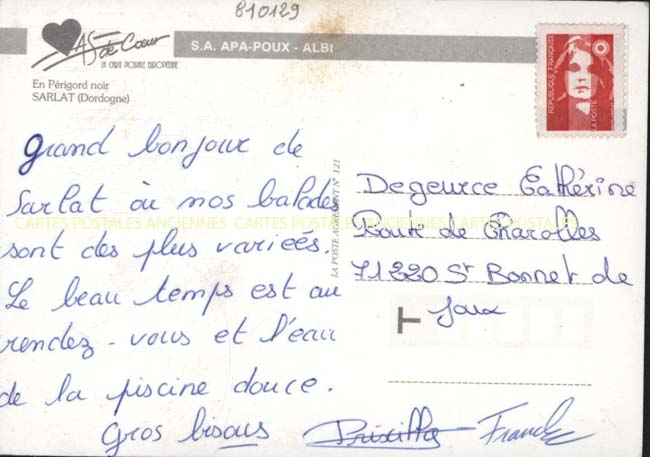 810129
AS de Coeur
LA CARTE POSTALE EUROPÉENNE
S.A. APA-POUX - ALBI
En Périgord noir
SARLAT (Dordogne)
REPUBLIQUE FRANÇAISE
LA POSTE
Grand bonjour de
Sarlat où nos balades
sont des plus variées.
Le beau temps est au
rendez-vous et l'eau
de la piscine douce.
Gros bisous Priscilla Franck
LA POSTE AGREMENT N° 121
Degeurce Cathérine
Route de Charolles
71220 St Bonnet de
Joux
T
CARTES POSTALES ANCIENNES CARTES POSTALES ANCIENNES CARTES POSTALES